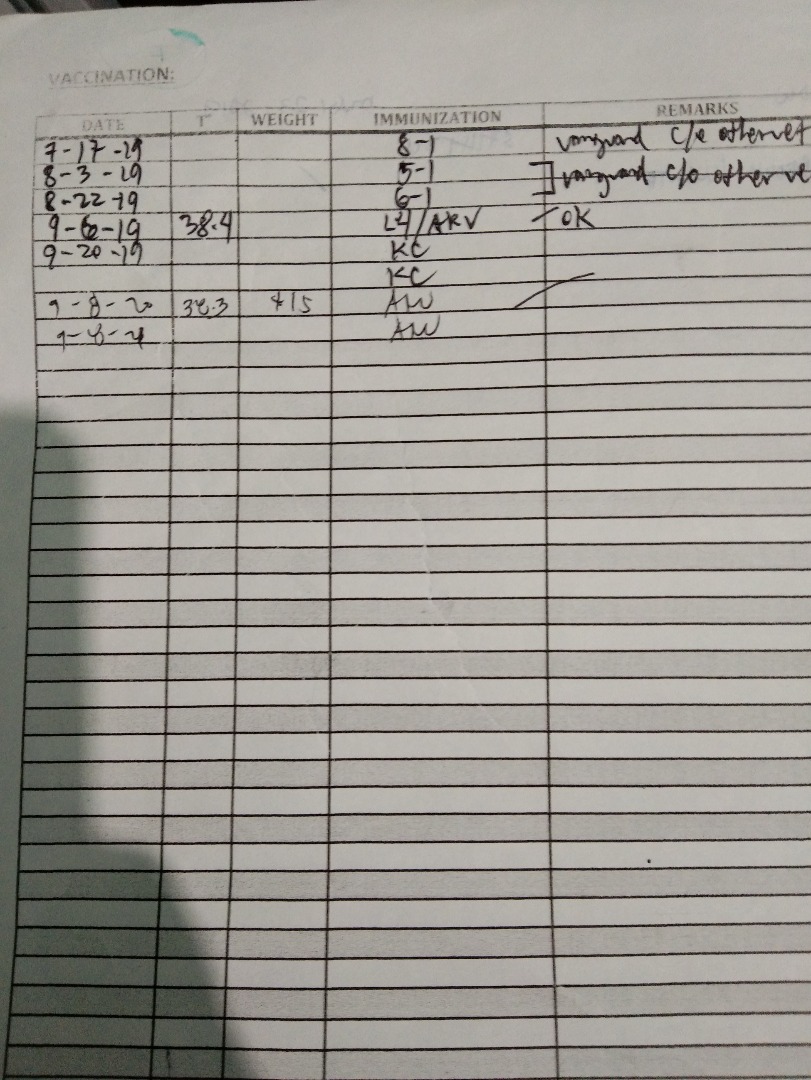 VACCINATION:
DATE T° WEIGHT IMMUNIZATION REMARKS
7-17-19 8-1 vanguard c/o other vet
8-3-19 5-1 vanguard c/o other ve
8-22-19 6-1
9-6-19 38.4 L4/ARV OK
9-20-19 KC
KC
9-8-20 38.3